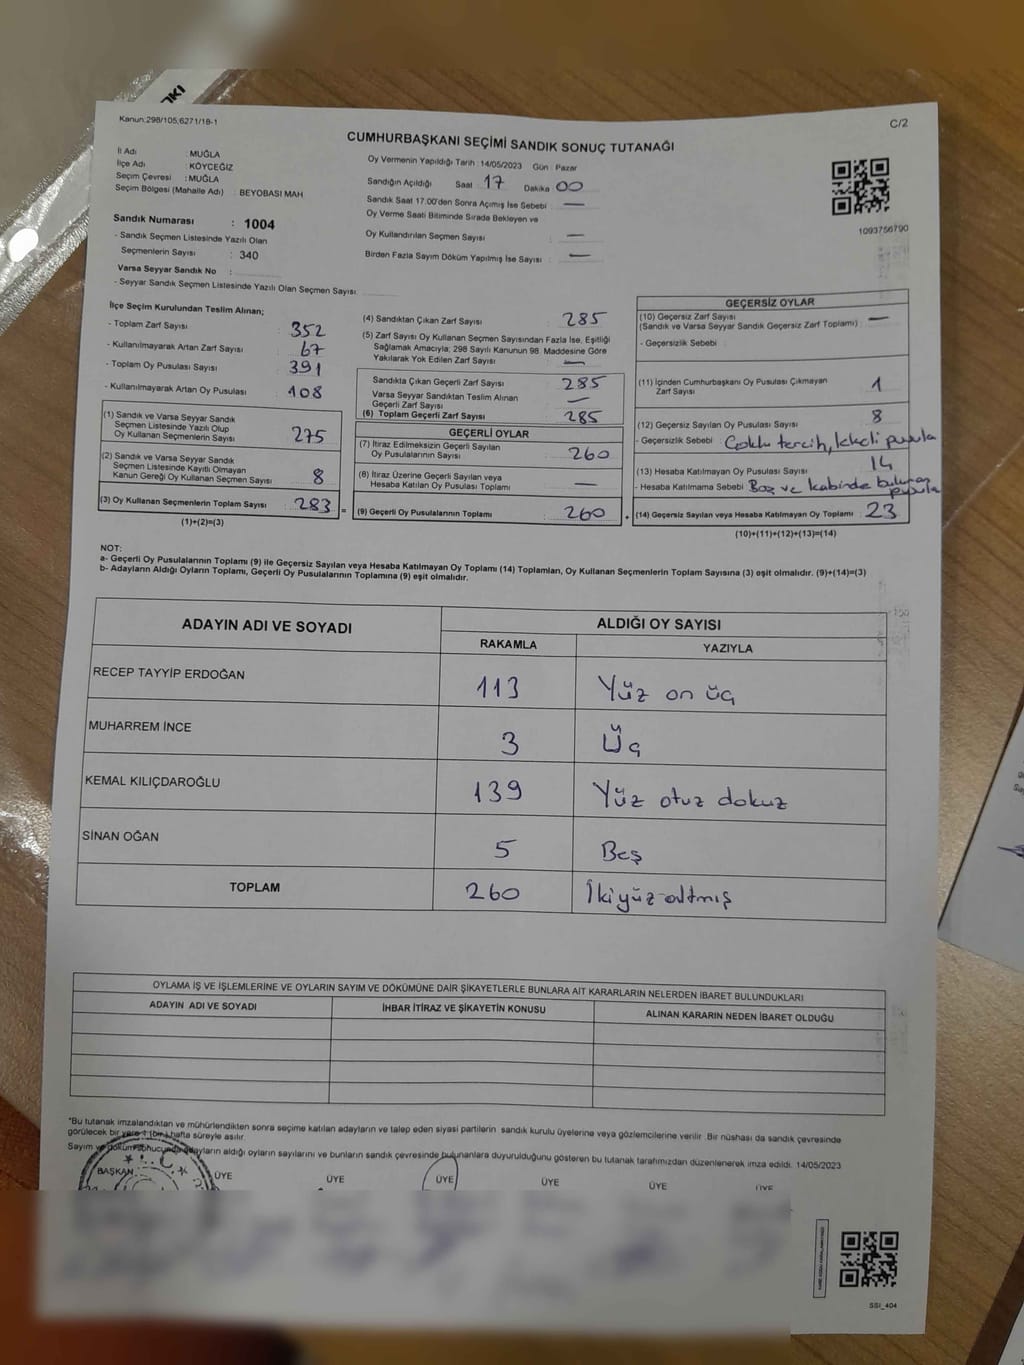 Kanun:298/105,6271/18-1
C/2
CUMHURBAŞKANI SEÇİMİ SANDIK SONUÇ TUTANAĞI
İl Adı : MUĞLA
İlçe Adı : KÖYCEĞİZ
Seçim Çevresi : MUĞLA
Seçim Bölgesi (Mahalle Adı) : BEYOBASI MAH
Oy Vermenin Yapıldığı Tarih : 14/05/2023 Gün : Pazar
Sandığın Açıldığı Saat : 17 Dakika : 00
Sandık Saat 17.00'den Sonra Açılmış İse Sebebi : —
Oy Verme Saati Bitiminde Sırada Bekleyen ve
Oy Kullandırılan Seçmen Sayısı : —
Birden Fazla Sayım Döküm Yapılmış İse Sayısı : —
1093756790
Sandık Numarası : 1004
- Sandık Seçmen Listesinde Yazılı Olan
Seçmenlerin Sayısı : 340
Varsa Seyyar Sandık No :
- Seyyar Sandık Seçmen Listesinde Yazılı Olan Seçmen Sayısı :
İlçe Seçim Kurulundan Teslim Alınan;
- Toplam Zarf Sayısı : 352
- Kullanılmayarak Artan Zarf Sayısı : 67
- Toplam Oy Pusulası Sayısı : 391
- Kullanılmayarak Artan Oy Pusulası : 108
(1) Sandık ve Varsa Seyyar Sandık
Seçmen Listesinde Yazılı Olup
Oy Kullanan Seçmenlerin Sayısı : 275
(2) Sandık ve Varsa Seyyar Sandık
Seçmen Listesinde Kayıtlı Olmayan
Kanun Gereği Oy Kullanan Seçmen Sayısı : 8
(3) Oy Kullanan Seçmenlerin Toplam Sayısı : 283 =
(1)+(2)=(3)
(4) Sandıktan Çıkan Zarf Sayısı : 285
(5) Zarf Sayısı Oy Kullanan Seçmen Sayısından Fazla İse, Eşitliği
Sağlamak Amacıyla; 298 Sayılı Kanunun 98. Maddesine Göre
Yakılarak Yok Edilen Zarf Sayısı : —
Sandıkta Çıkan Geçerli Zarf Sayısı : 285
Varsa Seyyar Sandıktan Teslim Alınan
Geçerli Zarf Sayısı : —
(6) Toplam Geçerli Zarf Sayısı : 285
GEÇERLİ OYLAR
(7) İtiraz Edilmeksizin Geçerli Sayılan
Oy Pusulalarının Sayısı : 260
(8) İtiraz Üzerine Geçerli Sayılan veya
Hesaba Katılan Oy Pusulası Toplamı : —
(9) Geçerli Oy Pusulalarının Toplamı : 260 +
GEÇERSİZ OYLAR
(10) Geçersiz Zarf Sayısı : —
(Sandık ve Varsa Seyyar Sandık Geçersiz Zarf Toplamı)
- Geçersizlik Sebebi :
(11) İçinden Cumhurbaşkanı Oy Pusulası Çıkmayan
Zarf Sayısı : 1
(12) Geçersiz Sayılan Oy Pusulası Sayısı : 8
- Geçersizlik Sebebi : Çoklu tercih, lekeli pusula
(13) Hesaba Katılmayan Oy Pusulası Sayısı : 14
- Hesaba Katılmama Sebebi : Boş ve kabinde bulunan
pusula
(14) Geçersiz Sayılan veya Hesaba Katılmayan Oy Toplamı : 23
(10)+(11)+(12)+(13)=(14)
NOT:
a- Geçerli Oy Pusulalarının Toplamı (9) ile Geçersiz Sayılan veya Hesaba Katılmayan Oy Toplamı (14) Toplamları, Oy Kullanan Seçmenlerin Toplam Sayısına (3) eşit olmalıdır. (9)+(14)=(3)
b- Adayların Aldığı Oyların Toplamı, Geçerli Oy Pusulalarının Toplamına (9) eşit olmalıdır.
ADAYIN ADI VE SOYADI
ALDIĞI OY SAYISI
RAKAMLA YAZIYLA
RECEP TAYYİP ERDOĞAN 113 Yüz on üç
MUHARREM İNCE 3 Üç
KEMAL KILIÇDAROĞLU 139 Yüz otuz dokuz
SİNAN OĞAN 5 Beş
TOPLAM 260 İkiyüz altmış
OYLAMA İŞ VE İŞLEMLERİNE VE OYLARIN SAYIM VE DÖKÜMÜNE DAİR ŞİKAYETLERLE BUNLARA AİT KARARLARIN NELERDEN İBARET BULUNDUKLARI
ADAYIN ADI VE SOYADI İHBAR İTİRAZ VE ŞİKAYETİN KONUSU ALINAN KARARIN NEDEN İBARET OLDUĞU
*Bu tutanak imzalandıktan ve mühürlendikten sonra seçime katılan adayların ve talep eden siyasi partilerin sandık kurulu üyelerine veya gözlemcilerine verilir. Bir nüshası da sandık çevresinde
görülecek bir yere 1 (bir) hafta süreyle asılır.
Sayım ve döküm sonucunda adayların aldığı oyların sayılarını ve bunların sandık çevresinde bulunanlara duyurulduğunu gösteren bu tutanak tarafımızdan düzenlenerek imza edildi. 14/05/2023
BAŞKAN ÜYE ÜYE ÜYE ÜYE ÜYE ÜYE
SSI_404